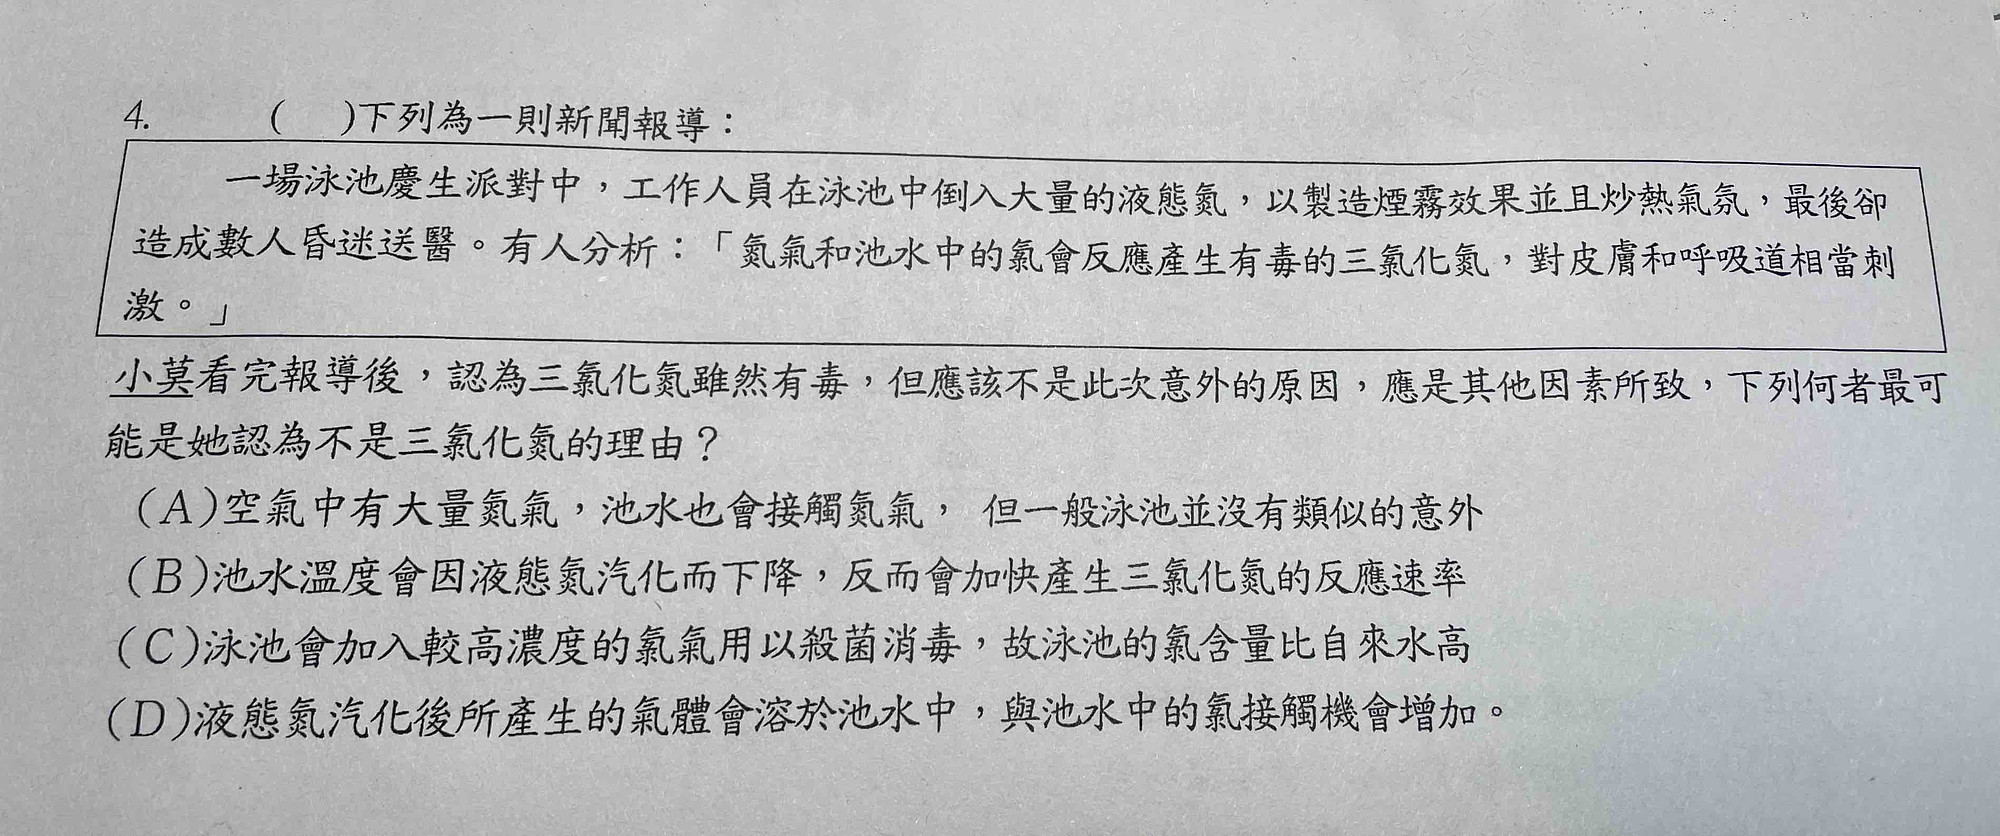 4. ( )下列為一則新聞報導：
一場泳池慶生派對中，工作人員在泳池中倒入大量的液態氮，以製造煙霧效果並且炒熱氣氛，最後卻
造成數人昏迷送醫。有人分析：「氮氣和池水中的氯會反應產生有毒的三氯化氮，對皮膚和呼吸道相當刺
激。」
小莫看完報導後，認為三氯化氮雖然有毒，但應該不是此次意外的原因，應是其他因素所致，下列何者最可
能是她認為不是三氯化氮的理由？
(A)空氣中有大量氮氣，池水也會接觸氮氣， 但一般泳池並沒有類似的意外
(B)池水溫度會因液態氮汽化而下降，反而會加快產生三氯化氮的反應速率
(C)泳池會加入較高濃度的氯氣用以殺菌消毒，故泳池的氯含量比自來水高
(D)液態氮汽化後所產生的氣體會溶於池水中，與池水中的氯接觸機會增加。